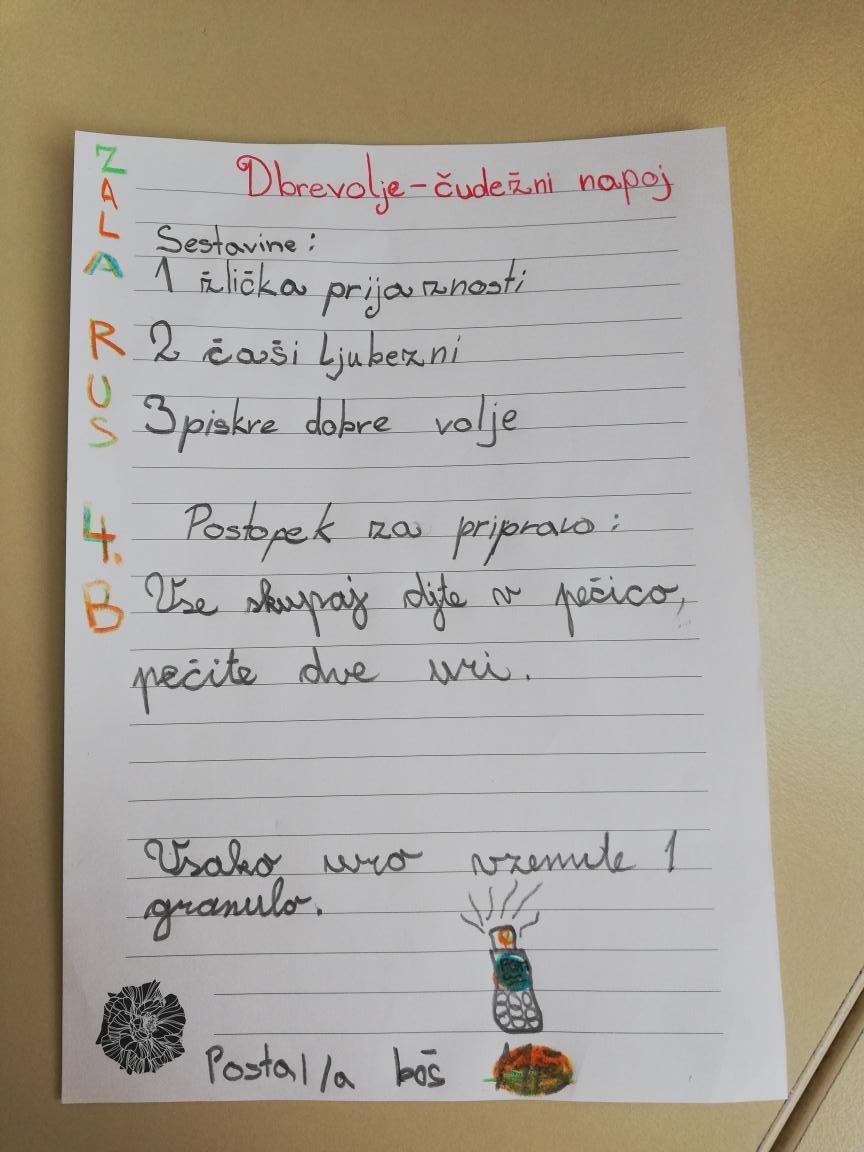 ZALA RUS 4. B
Dbrevolje-čudežni napoj
Sestavine:
1 žlička prijaznosti
2 čaši ljubezni
3 piskre dobre volje
Postopek za pripravo:
Vse skupaj djte v pečico,
pečite dve uri.
Vsako uro vzemite 1
granulo.
Postal/a boš